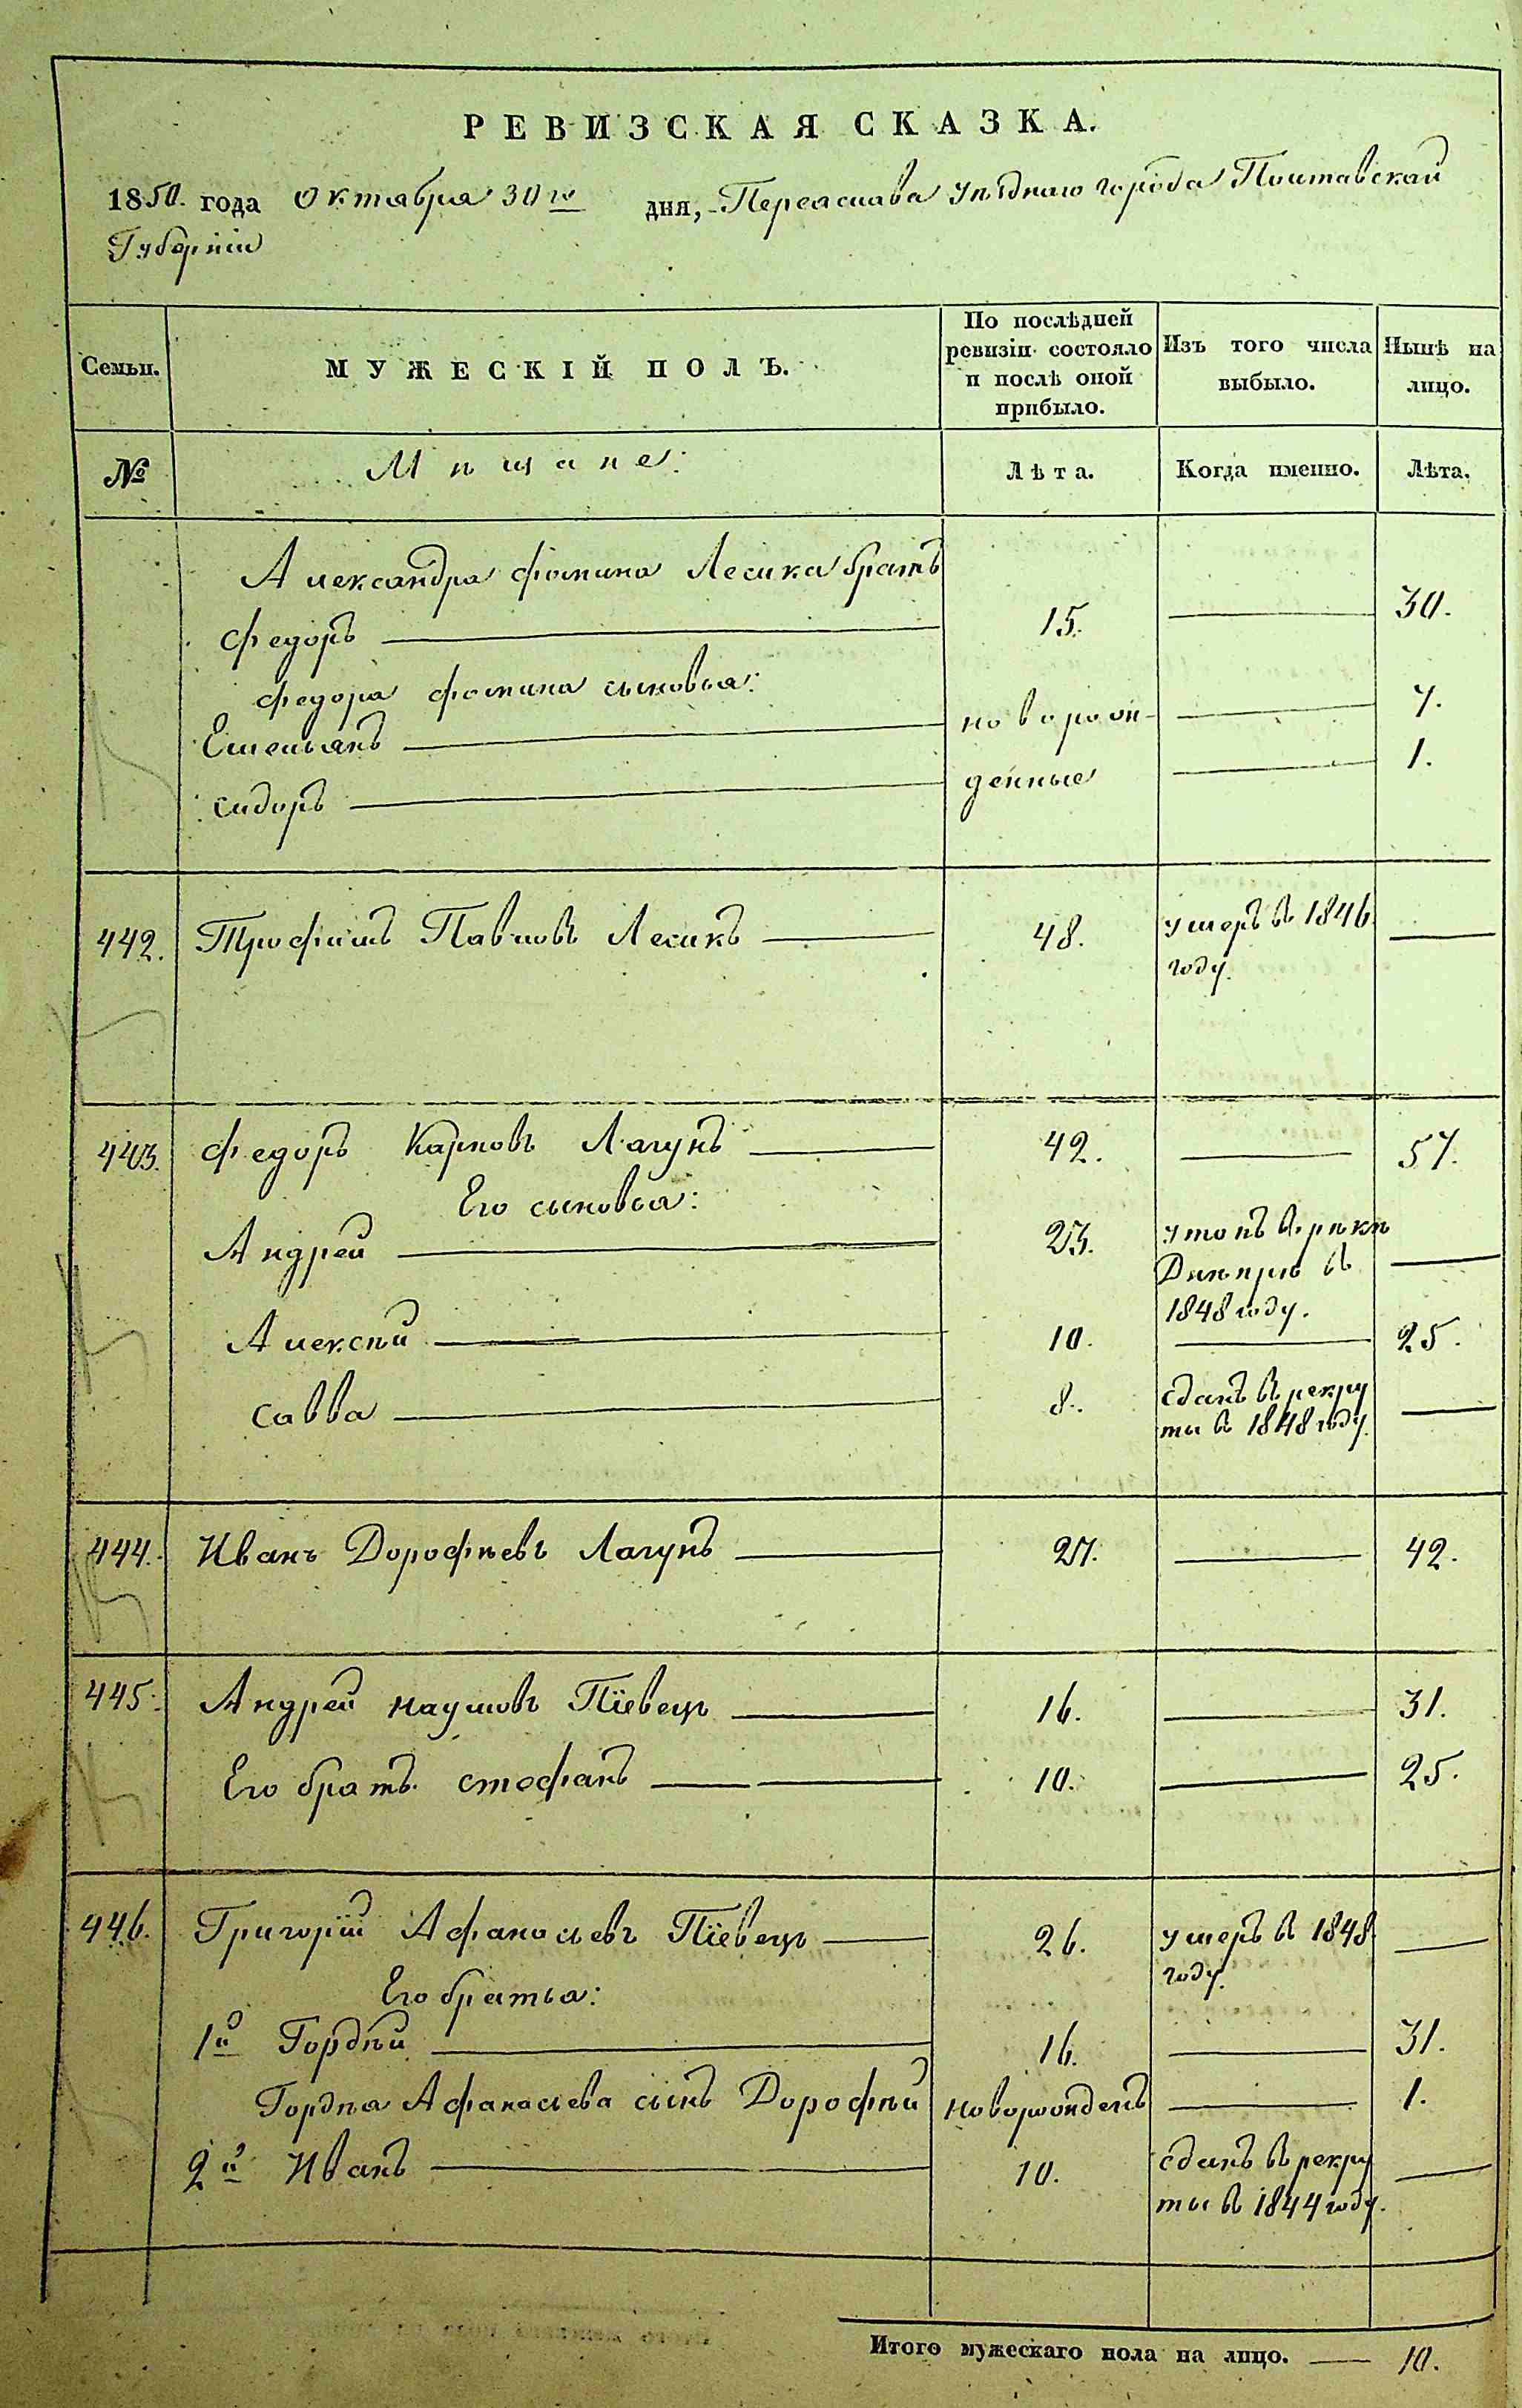 РЕВИЗСКАЯ СКАЗКА.
1850. года Октября 30го дня, Переаслава уѣзднаго города Полтавской
Губерніи
Семьи.
МУЖЕСКІЙ ПОЛЪ.
По послѣдней
ревизіи состояло
и послѣ оной
прибыло.
Изъ того числа
выбыло.
Нынѣ на
лицо.
№ Мѣщане: Лѣта. Когда именно. Лѣта.
Александра Фомина Лесика братъ
Федоръ 15. 30.
Федора Фомина сыновья:
Емельянъ новорож- 7.
Сидоръ денные 1.
442. Трофимъ Павловъ Лесикъ 48. умеръ въ 1846
году.
443. Федоръ Карповъ Лагунъ 42. 57.
Его сыновья:
Андрей 23. утопъ въ рѣкѣ
Днѣпрѣ въ
1848 году.
Алексѣй 10. 25.
Савва 8. сданъ въ рекру
ты въ 1848 году.
444. Иванъ Дорофѣевъ Лагунъ 27. 42.
445. Андрей Наумовъ Пѣевецъ 16. 31.
Его братъ Стефанъ 10. 25.
446. Григорій Афанасьевъ Пѣевецъ 26. умеръ въ 1848
году.
Его братья:
1й Гордѣй 16. 31.
Гордѣя Афанасьева сынъ Дорофѣй новорожденъ 1.
2й Иванъ 10. сданъ въ рекру
ты въ 1844 году.
Итого мужескаго пола на лицо. — 10.